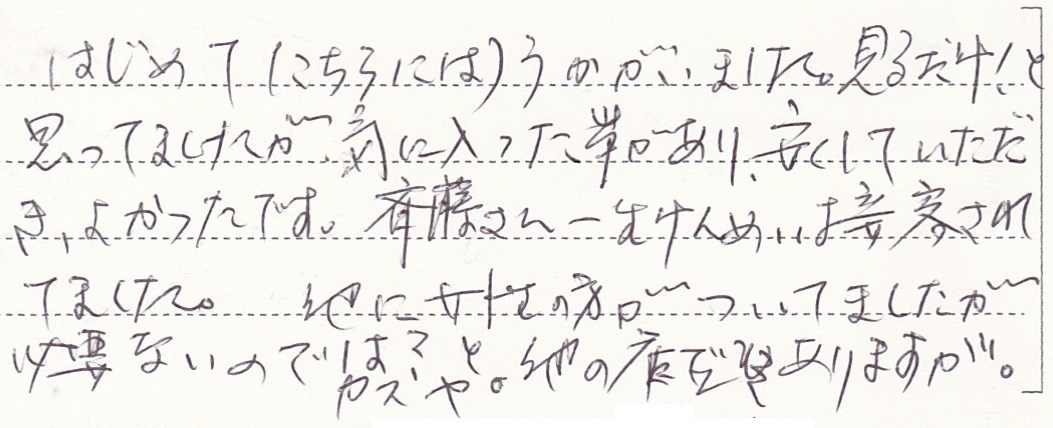 はじめて(こちらには)うかがいました。見るだけ!と
思ってましたが、気に入った帯があり、安くしていただ
き、よかったです。斉藤さん一生けんめい接客され
てました。 他に女性の方がついてましたが
必要ないのでは?と。他の店でもありますが。